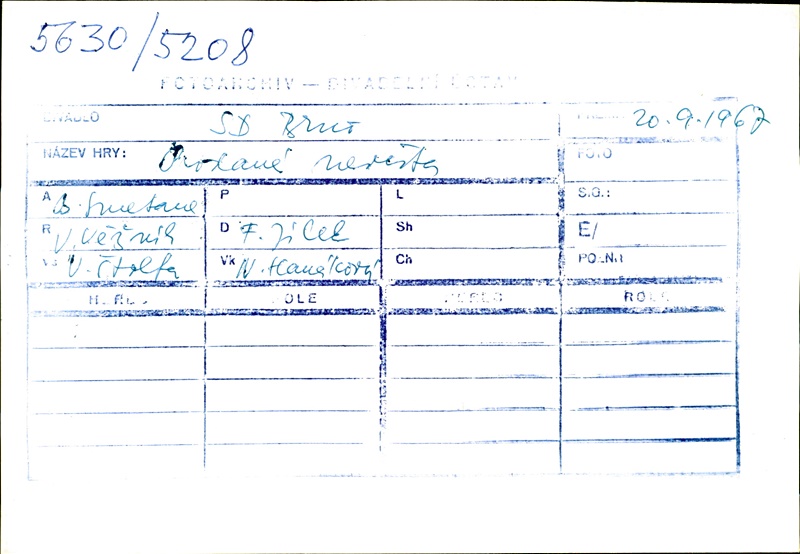 5630/5208
FOTOARCHIV — DIVADELNÍ ÚSTAV
DIVADLO SD Brno 20.9.1967
NÁZEV HRY: Prodaná nevěsta FOTO
A B. Smetana P L S.G.:
R V. Věžník D F. Jílek Sh E/
V. Štolfa Vk N. Hanáková Ch POZN.:
HEREC ROLE HEREC ROLE